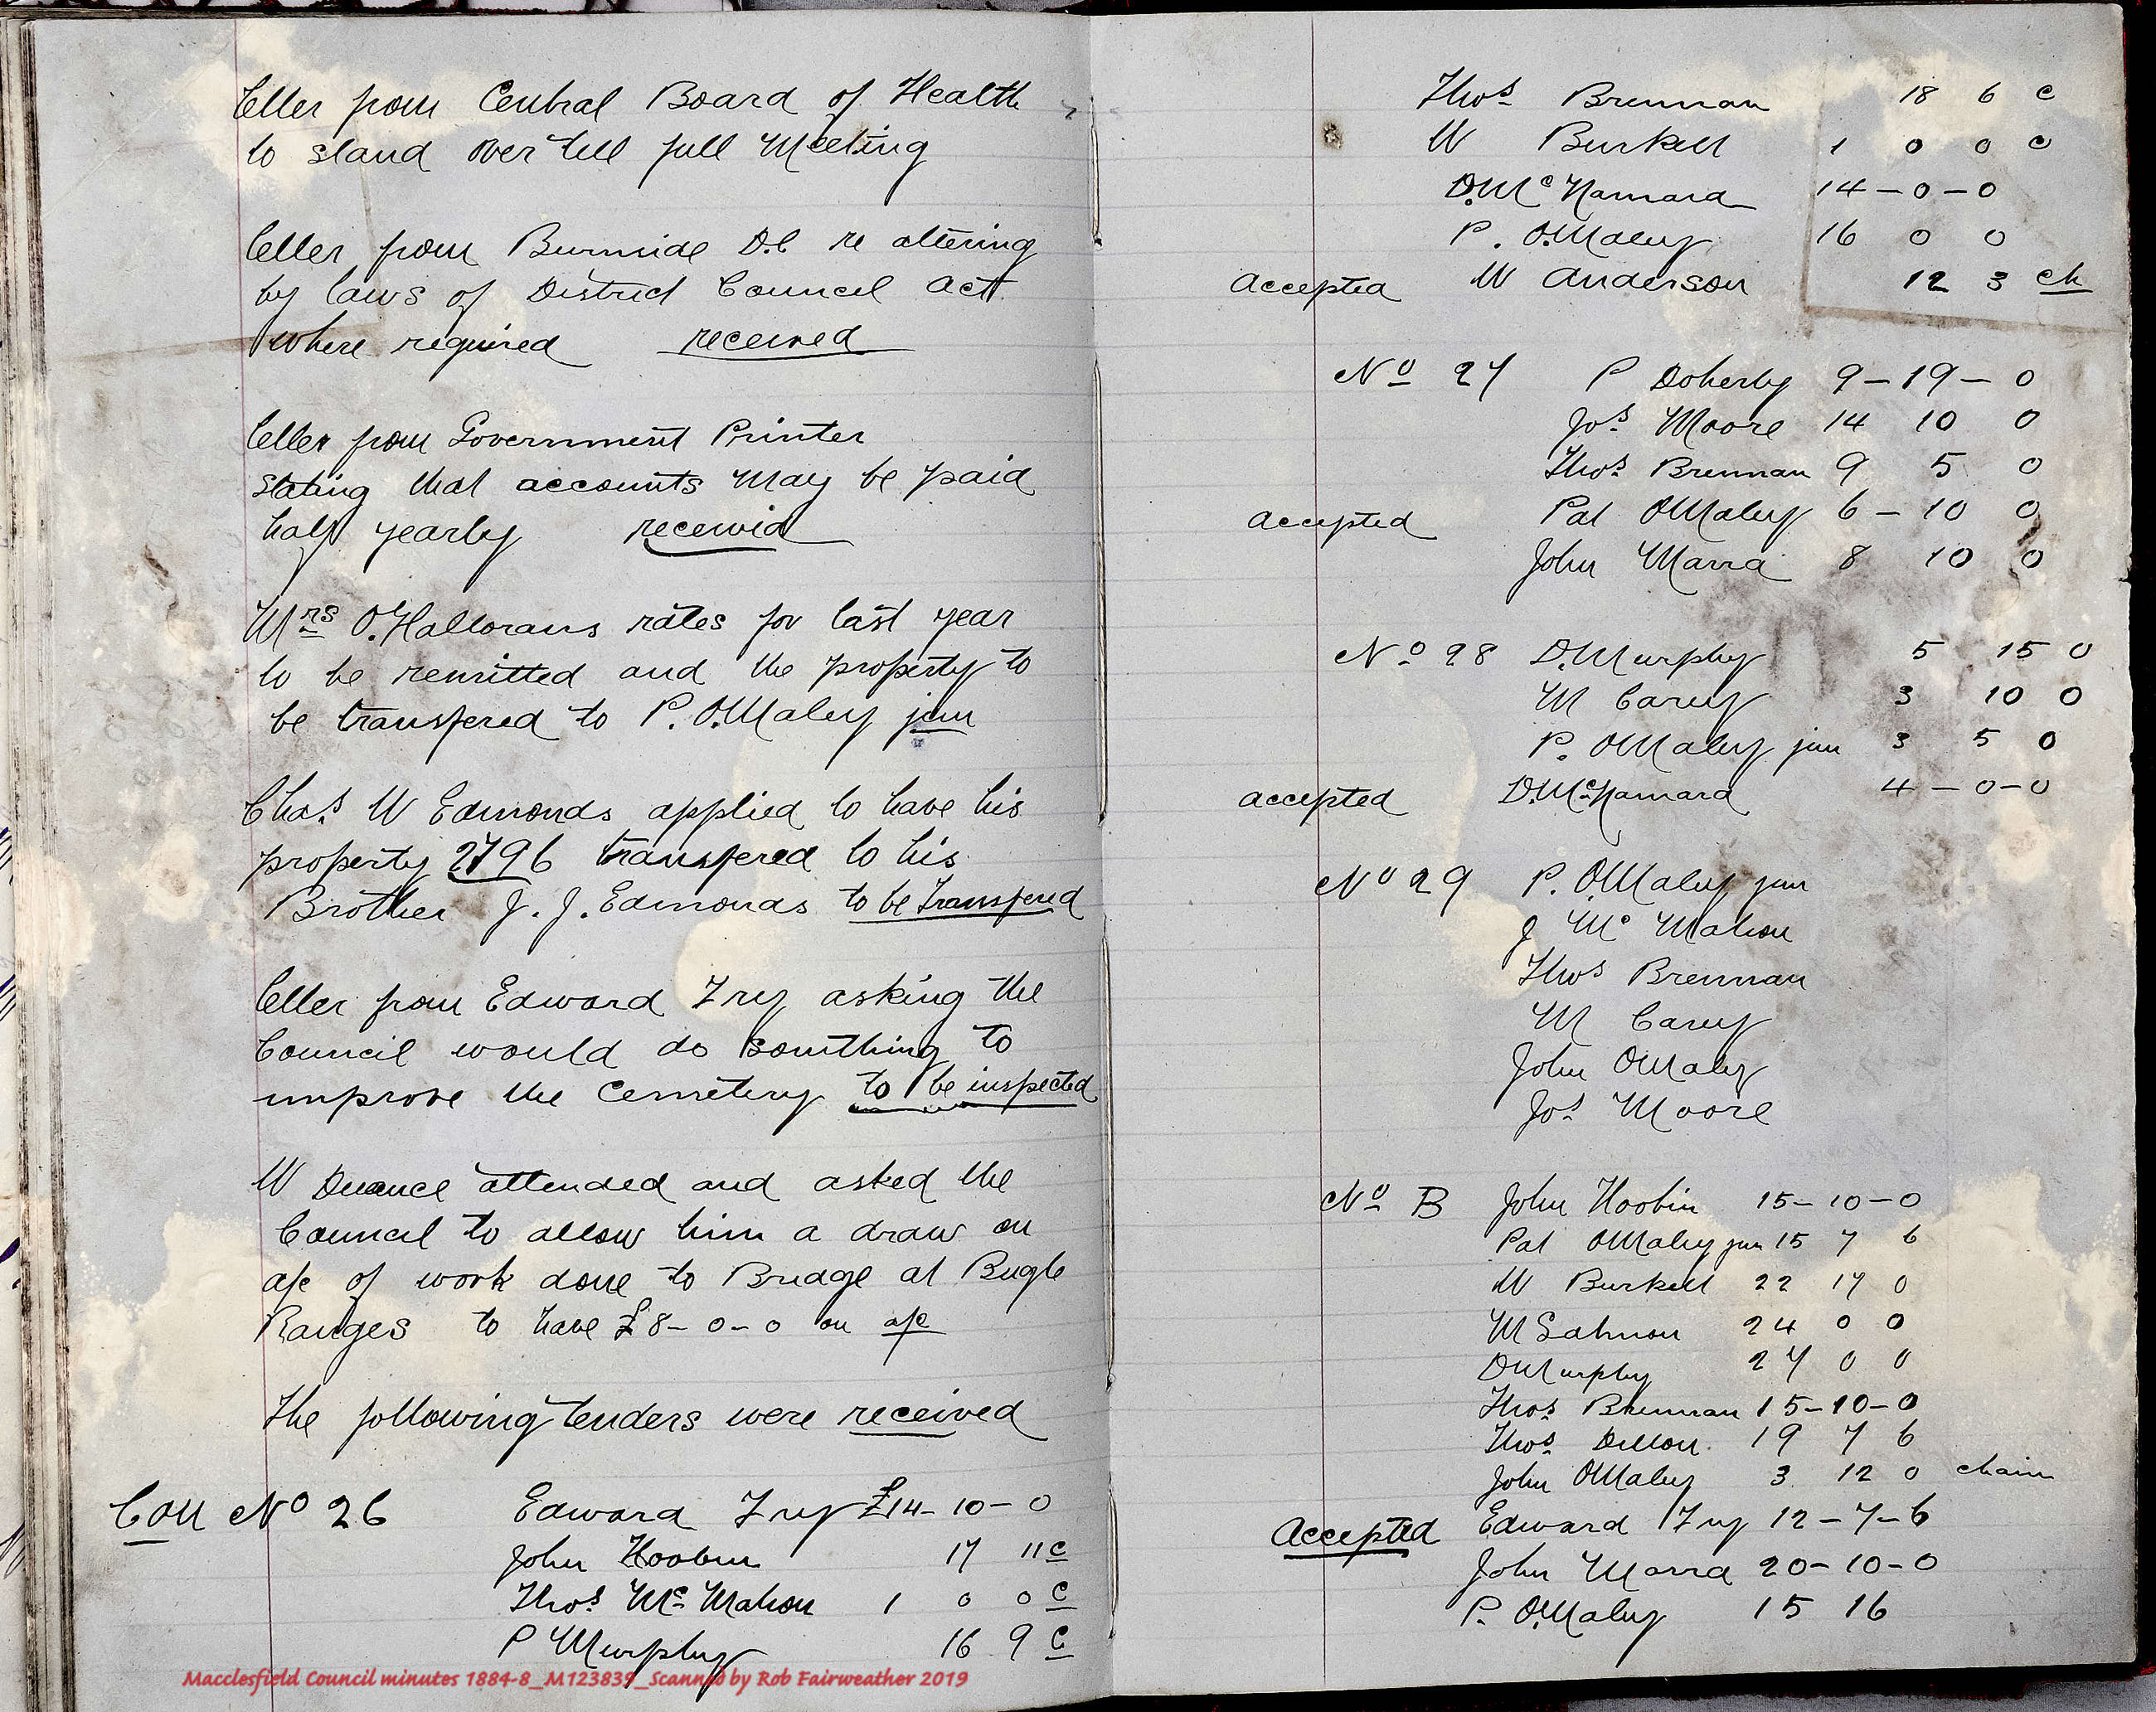 letter from Central Board of Health
to stand over till full Meeting
letter from Burnside D.C. re altering
by laws of District Council Act
where required received
letter from Government Printer
stating that accounts may be paid
half yearly received
Mrs O.Hallorans rates for last year
to be remitted and the property to
be transfered to P. O.Maley jun
Chas. W Edmonds applied to have his
property 2796 transfered to his
Brother J. J. Edmonds to be Transfered
letter from Edward Fry asking the
Council would do somthing to
improve the Cemetery to be inspected
W Deuance attended and asked the
Council to allow him a draw on
a/c of work done to Bridge at Bugle
Ranges to have £8-0-0 on a/c
The following tenders were received
Con No 26 Edward Fry £14-10-0
John Hoobin 17 11 c
Thos. Mc Mahon 1 0 0 c
P Murphy 16 9 c
Macclesfield Council minutes 1884-8_M123839_Scanned by Rob Fairweather 2019
Thos Brennan 18 6 c
W Burkell 1 0 0 c
D. Mc Namara 14-0-0
P. O.Maley 16 0 0
accepted W Anderson 12 3 ch
No 27 P Doherty 9-19-0
Jos. Moore 14 10 0
Thos. Brennan 9 5 0
accepted Pat OMaley 6-10 0
John Marra 8 10 0
No 28 D.Murphy 5 15 0
M Carey 3 10 0
P. OMaley jun 3 5 0
accepted D.McNamara 4-0-0
No 29 P. OMaley jun
J Mc Mahon
Thos Brennan
M Carey
John OMaley
Jos Moore
No B John Hoobin 15-10-0
Pat OMaley jun 15 7 6
W Burkell 22 17 0
M Salmon 24 0 0
D Murphy 27 0 0
Thos. Brennan 15-10-0
Thos. Dillon 19 7 6
John OMaley 3 12 0 chain
Accepted Edward Fry 12-7-6
John Marra 20-10-0
P. O.Maley 15 16